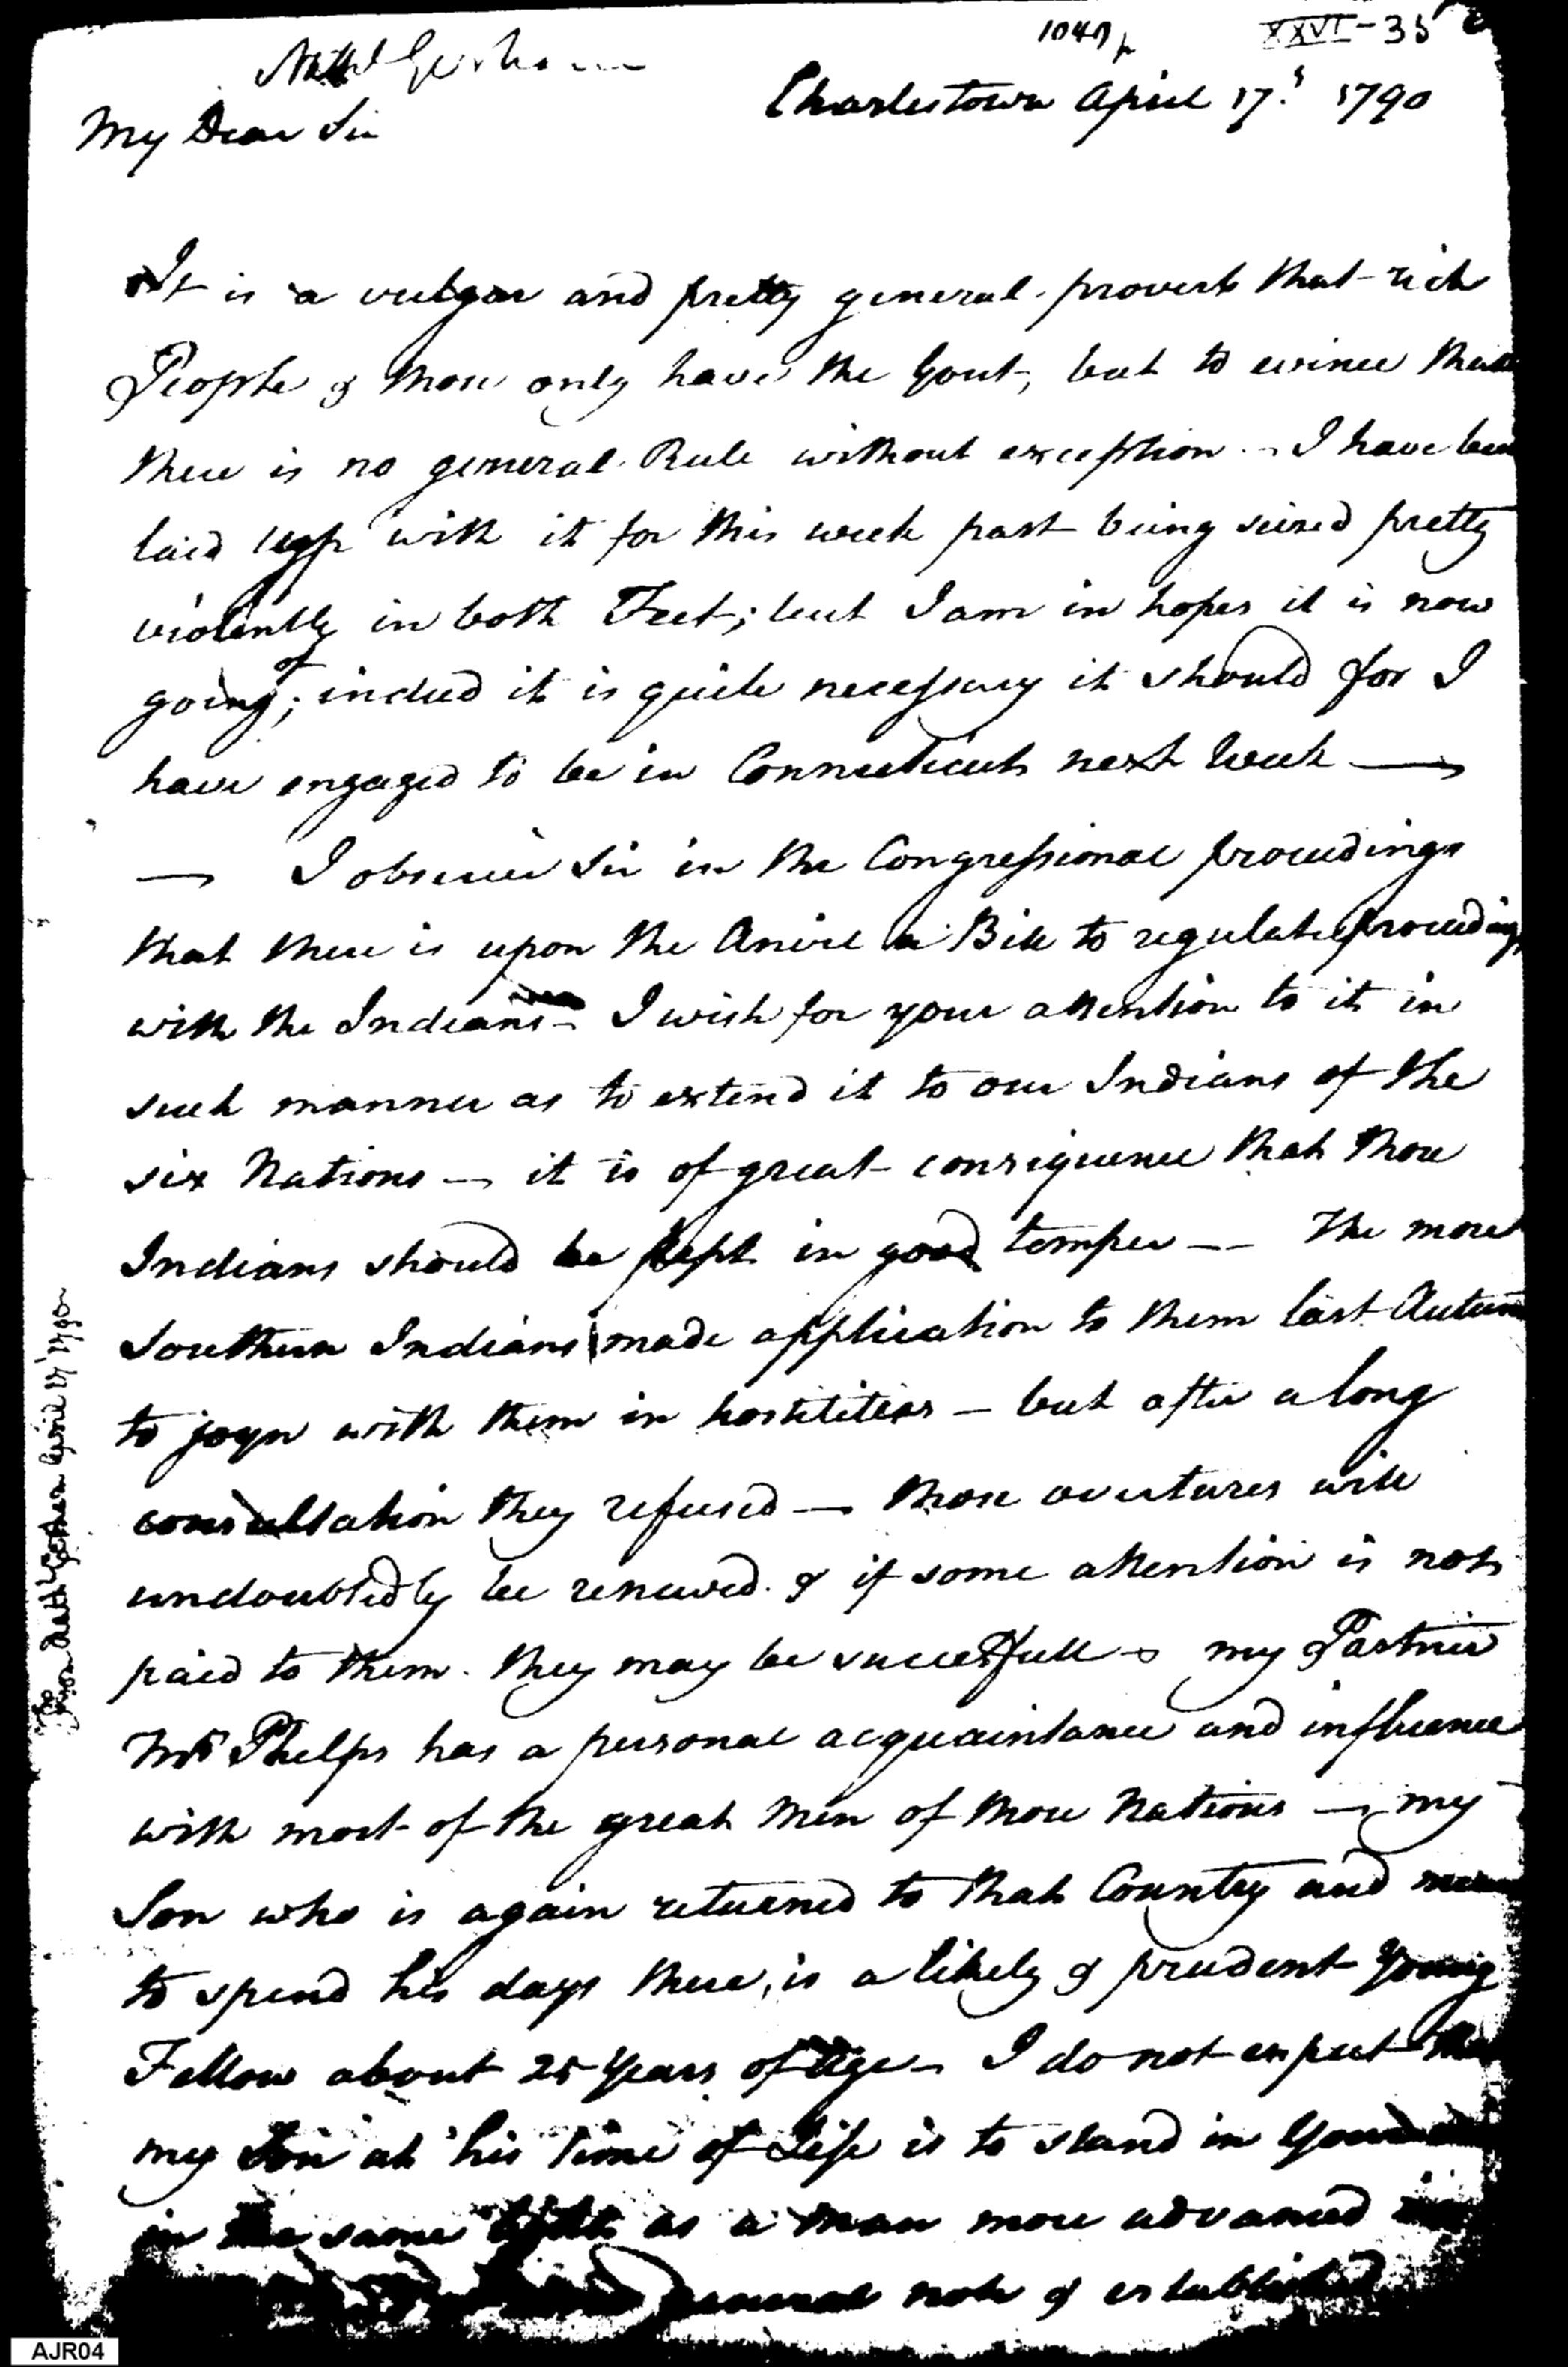 1040 p
XXVI-35
Nathl Gorham
Charlestown April 17.th 1790
My Dear Sir
It is a vulgar and pretty general proverb that rich
People & those only have the Gout, but to evince that
there is no general Rule without exception - I have been
laid up with it for this week past being seized pretty
violently in both Feet; but I am in hopes it is now
going off; indeed it is quite necessary it should for I
have engaged to be in Connecticut next Week —
— I observe Sir in the Congressional proceedings
that there is upon the Anvil a Bill to regulate proceedings
with the Indians - I wish for your attention to it in
such manner as to extend it to our Indians of the
six Nations — it is of great consiquence that those
Indians should be kept in good temper — The more
Southern Indians made application to them last Autumn
to joyn with them in hostilities — but after a long
consultation they refused — those overtures will
undoubtedly be renewed & if some attention is not
paid to them they may be successfull - my Partner
Mr Phelps has a personal acquaintance and influence
with most of the great Men of those Nations — my
Son who is again returned to that Country and means
to spend his days there, is a likely & prudent Young
Fellow about 25 Years of Age - I do not expect that
my Son at his time of Life is to stand in Your
in the same light as a man more advanced in
general note & established
Hon Nathl Gorham April 17 1790
AJR04